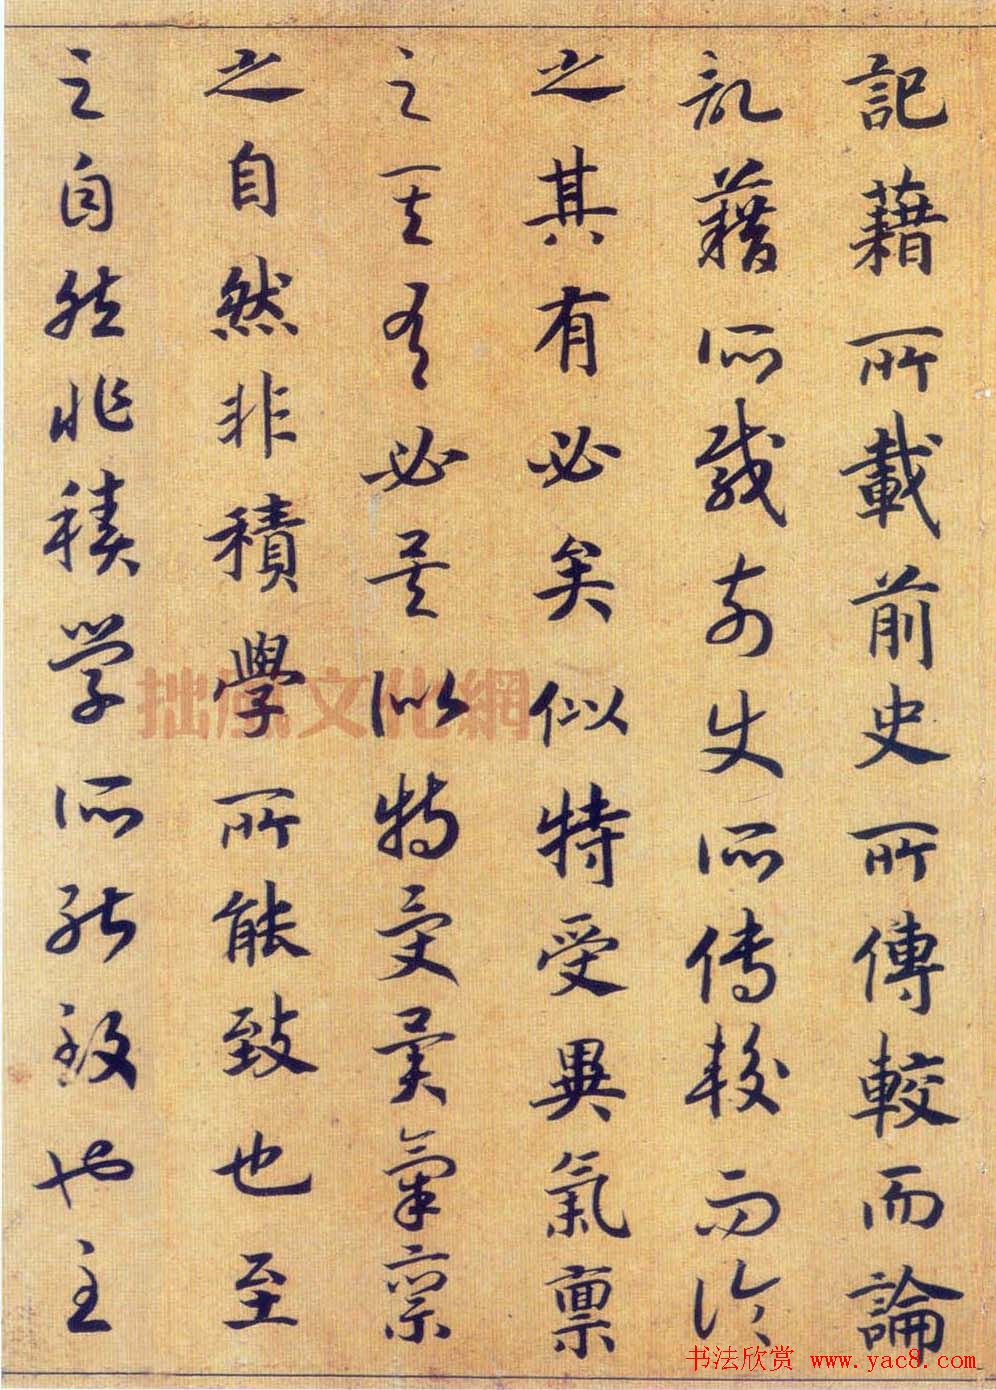 記藉所載前史所傳較而論
記藉所載前史所傳較而論
之其有必矣似特受異氣禀
之其有必矣似特受異氣禀
之自然非積學所能致也至
之自然非積學所能致也至
拙風文化網
书法欣赏 www.yac8.com